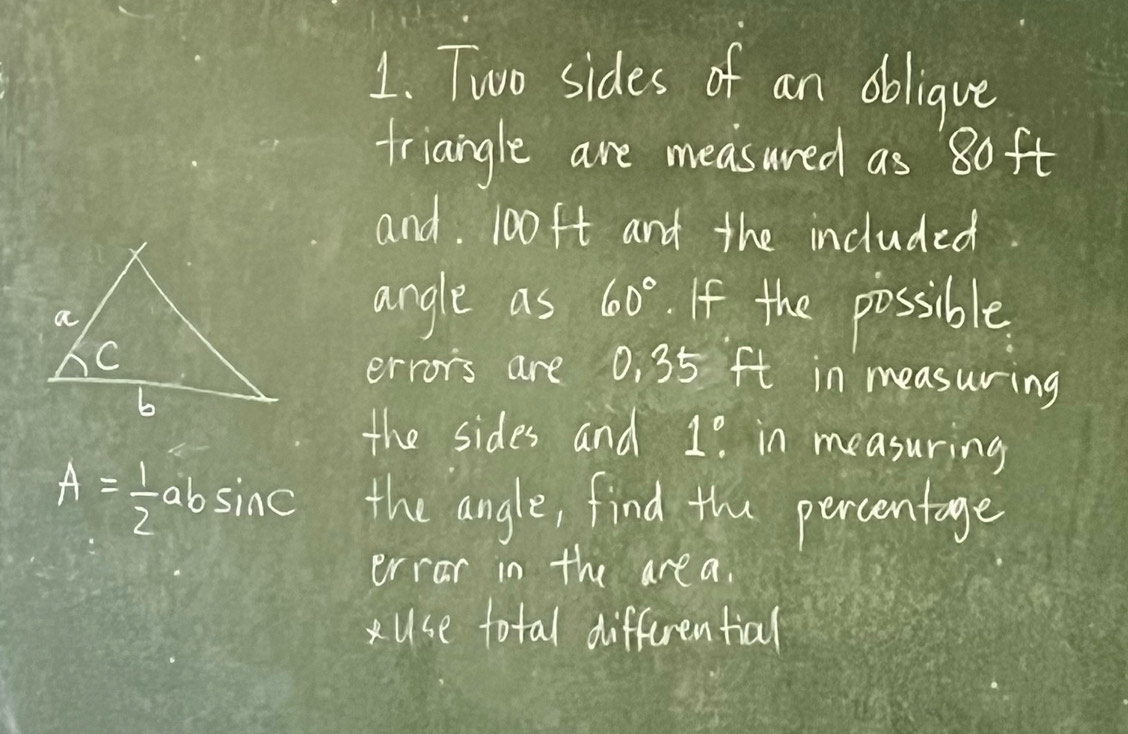 1. Two sides of an oblique
triangle are measured as 80 ft
and 100 ft and the included
angle as 60°. If the possible
errors are 0.35 ft in measuring
the sides and 1° in measuring
the angle, find the percentage
error in the area.
*Use total differential
a
C
b
A = 1/2 ab sin C